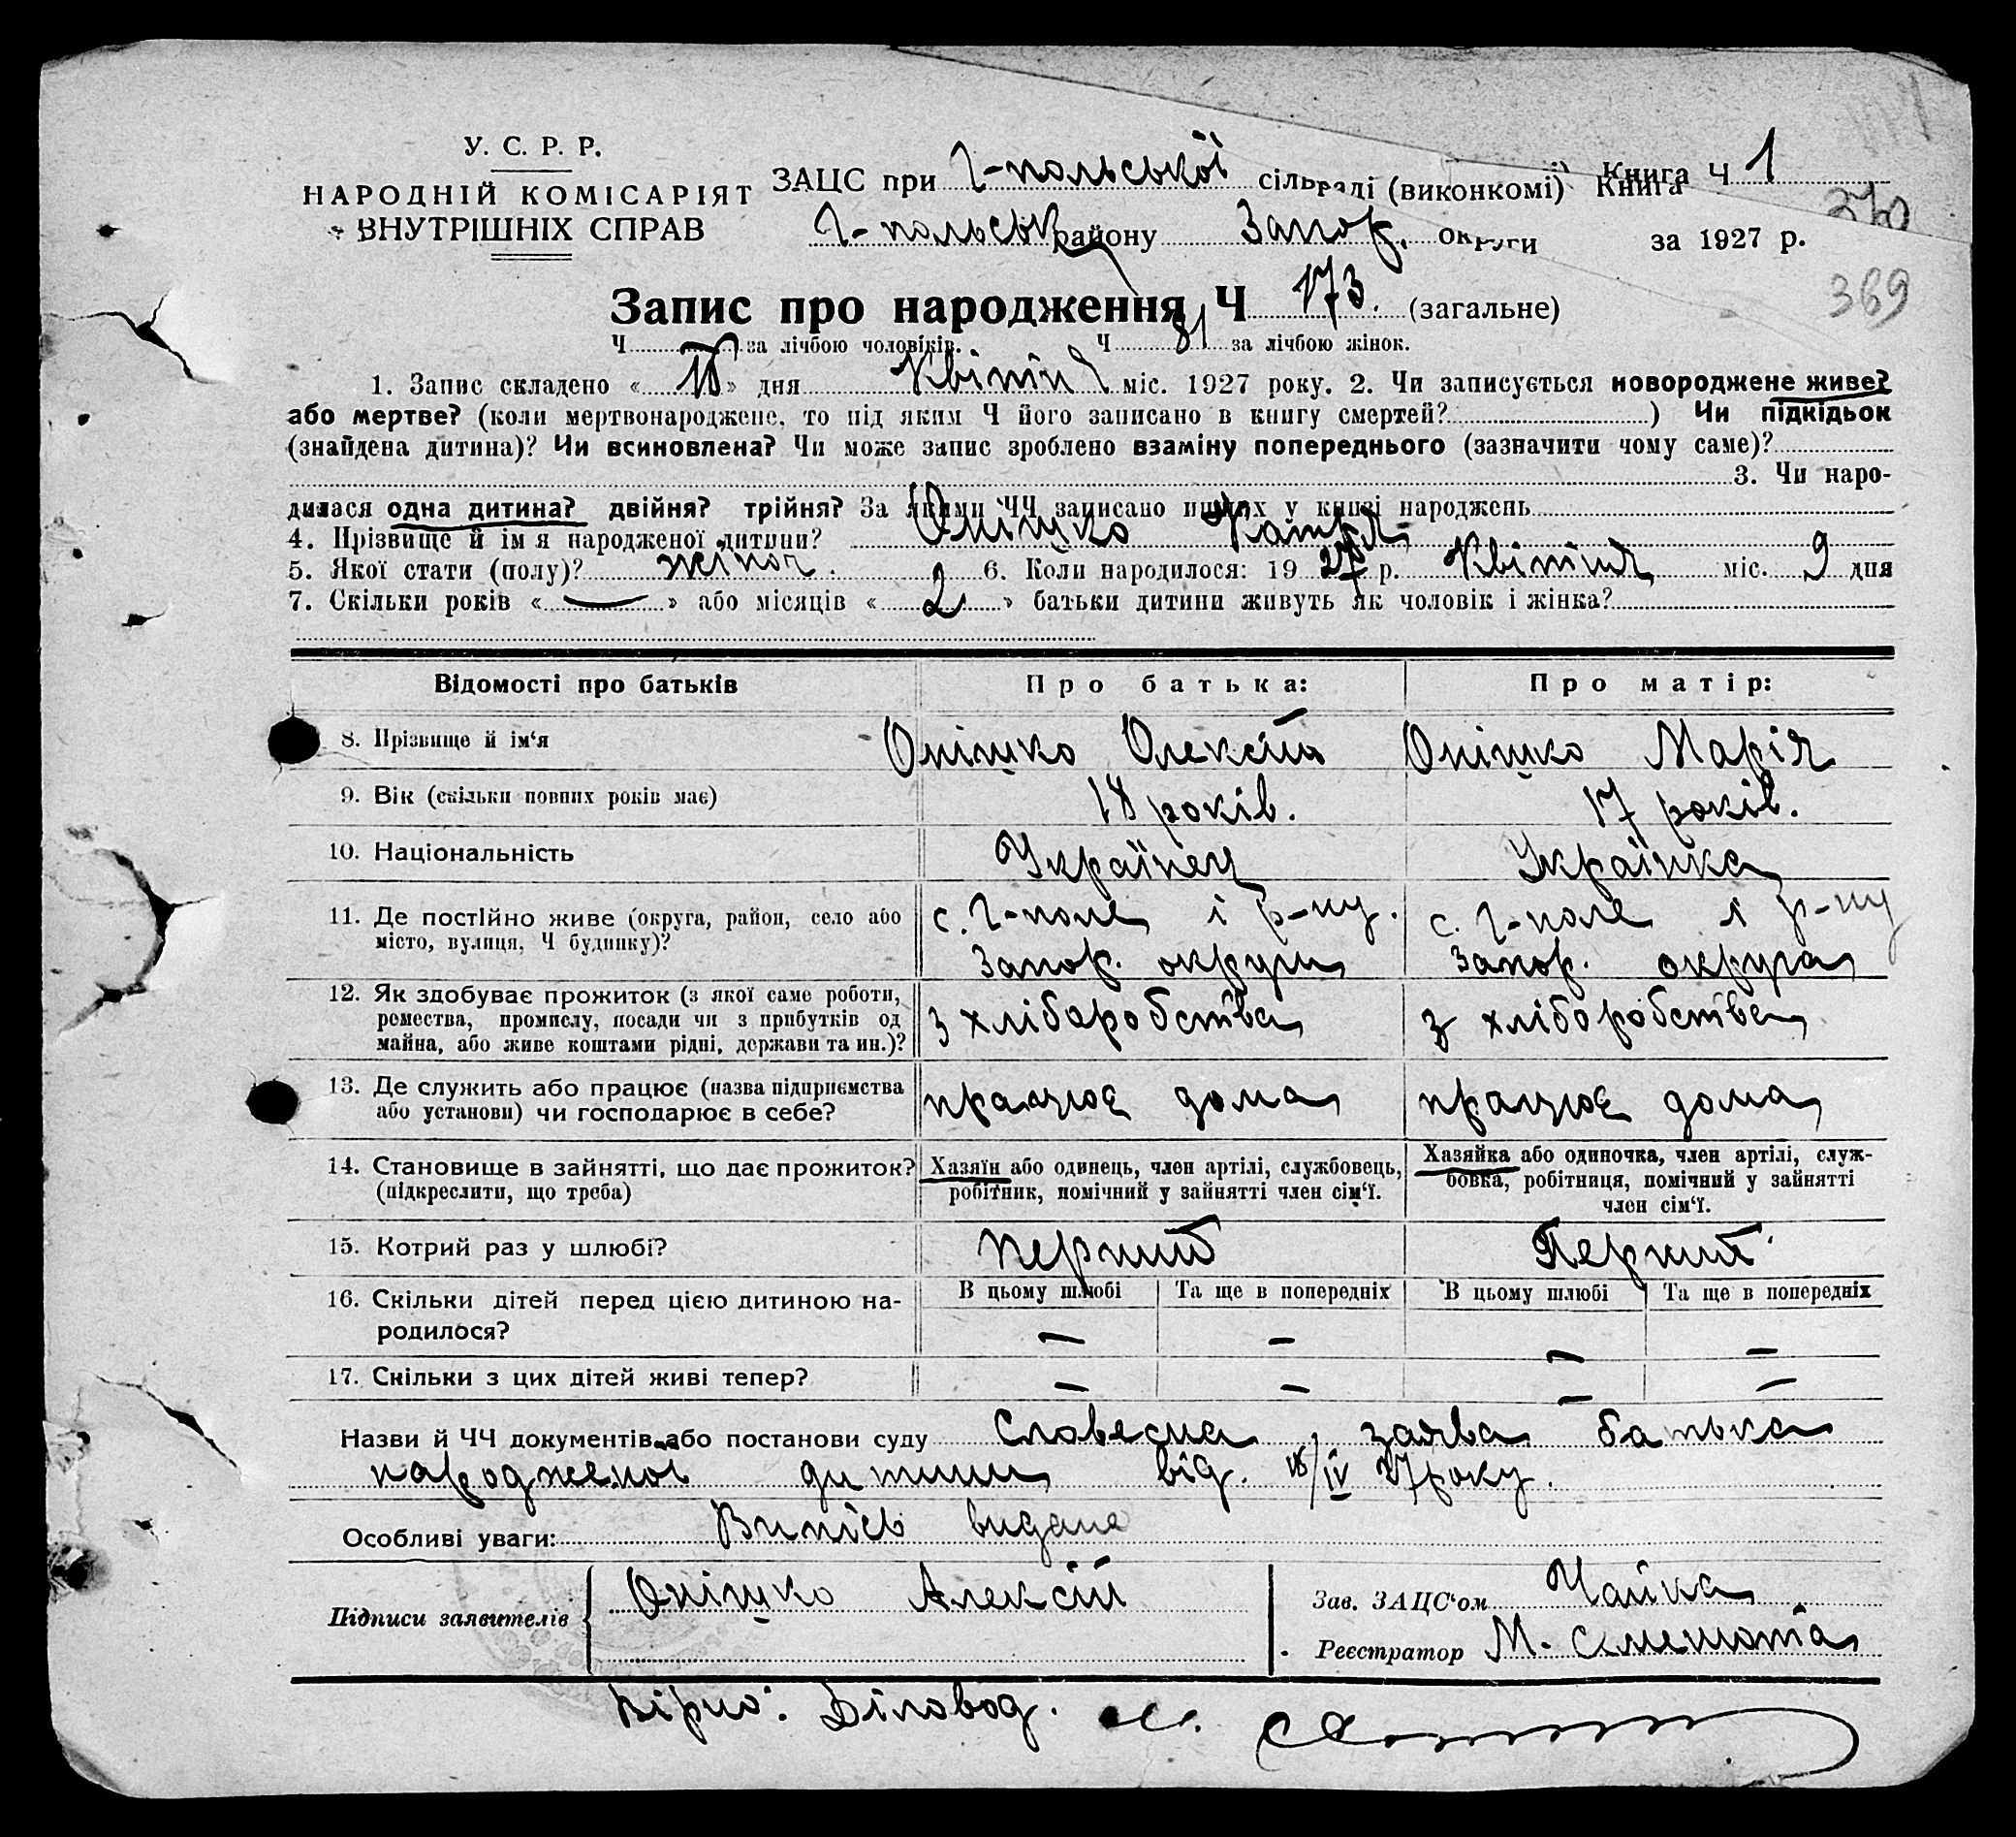 У. С. Р. Р.
НАРОДНІЙ КОМІСАРІЯТ
ВНУТРІШНІХ СПРАВ
ЗАЦС при Г-польської сільраді (виконкомі) Книга Ч 1
Г-польськ району Запор. округи за 1927 р.
370
369
Запис про народження Ч 173. (загальне)
Ч за лічбою чоловіків. Ч 81 за лічбою жінок.
1. Запис складено «18» дня Квітня міс. 1927 року. 2. Чи записується новороджене живе?
або мертве? (коли мертвонароджене, то під яким Ч його записано в книгу смертей?) Чи підкідьок
(знайдена дитина)? Чи всиновлена? Чи може запис зроблено взаміну попереднього (зазначити чому саме)?
3. Чи наро-
дилася одна дитина? двійня? трійня? За якими ЧЧ записано инших у книзі народжень
4. Прізвище й ім я народженої дитини? Оніщко Катря
5. Якої стати (полу)? жіноч. 6. Коли народилося: 1927 р. Квітня міс. 9 дня
7. Скільки років «—» або місяців «2» батьки дитини живуть як чоловік і жінка?
Відомості про батьків Про батька: Про матір:
8. Прізвище й ім‘я Оніщко Олексій Оніщко Марія
9. Вік (скільки повних років має) 18 років. 17 років.
10. Національність Українец Українка
11. Де постійно живе (округа, район, село або с. Г-поле і р-ну. с. Г-поле і р-ну
місто, вулиця, Ч будинку)? Запор. округи Запор. округа
12. Як здобуває прожиток (з якої саме роботи,
ремества, промислу, посади чи з прибутків од з хліборобства з хліборобства
майна, або живе коштами рідні, держави та ин.)?
13. Де служить або працює (назва підприємства працює дома працює дома
або установи) чи господарює в себе?
14. Становище в зайнятті, що дає прожиток? Хазяїн або одинець, член артілі, службовець, Хазяйка або одиночка, член артілі, служ-
(підкреслити, що треба) робітник, помічний у зайнятті член сім‘ї. бовка, робітниця, помічний у зайнятті
член сім‘ї.
15. Котрий раз у шлюбі? Перший Перший
16. Скільки дітей перед цією дитиною на- В цьому шлюбі Та ще в попередніх В цьому шлюбі Та ще в попередніх
родилося? — — — —
17. Скільки з цих дітей живі тепер? — — — —
Назви й ЧЧ документів або постанови суду Словесна заява батька
народженої дитини від. 18/IV 27 року.
Особливі уваги: Випісь видана
Підписи заявителів Оніщко Алексій Зав. ЗАЦС‘ом Чайка
Реєстратор М.
Вірно: Діловод.